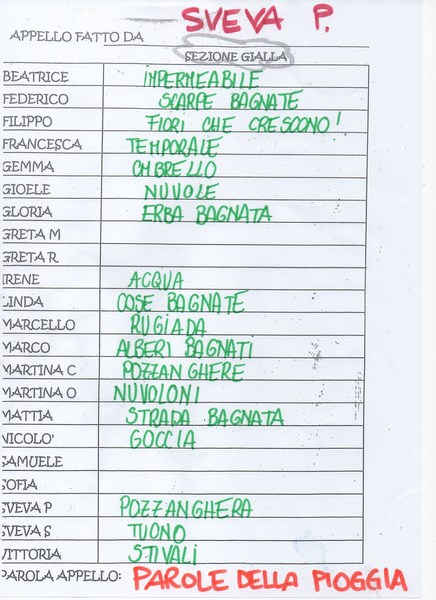 APPELLO FATTO DA SVEVA P.
SEZIONE GIALLA
BEATRICE IMPERMEABILE
FEDERICO SCARPE BAGNATE
FILIPPO FIORI CHE CRESCONO!
FRANCESCA TEMPORALE
GEMMA OMBRELLO
GIOELE NUVOLE
GLORIA ERBA BAGNATA
GRETA M
GRETA R
IRENE ACQUA
LINDA COSE BAGNATE
MARCELLO RUGIADA
MARCO ALBERI BAGNATI
MARTINA C POZZANGHERE
MARTINA O NUVOLONI
MATTIA STRADA BAGNATA
NICOLO' GOCCIA
SAMUELE
SOFIA
SVEVA P POZZANGHERA
SVEVA S TUONO
VITTORIA STIVALI
PAROLA APPELLO: PAROLE DELLA PIOGGIA